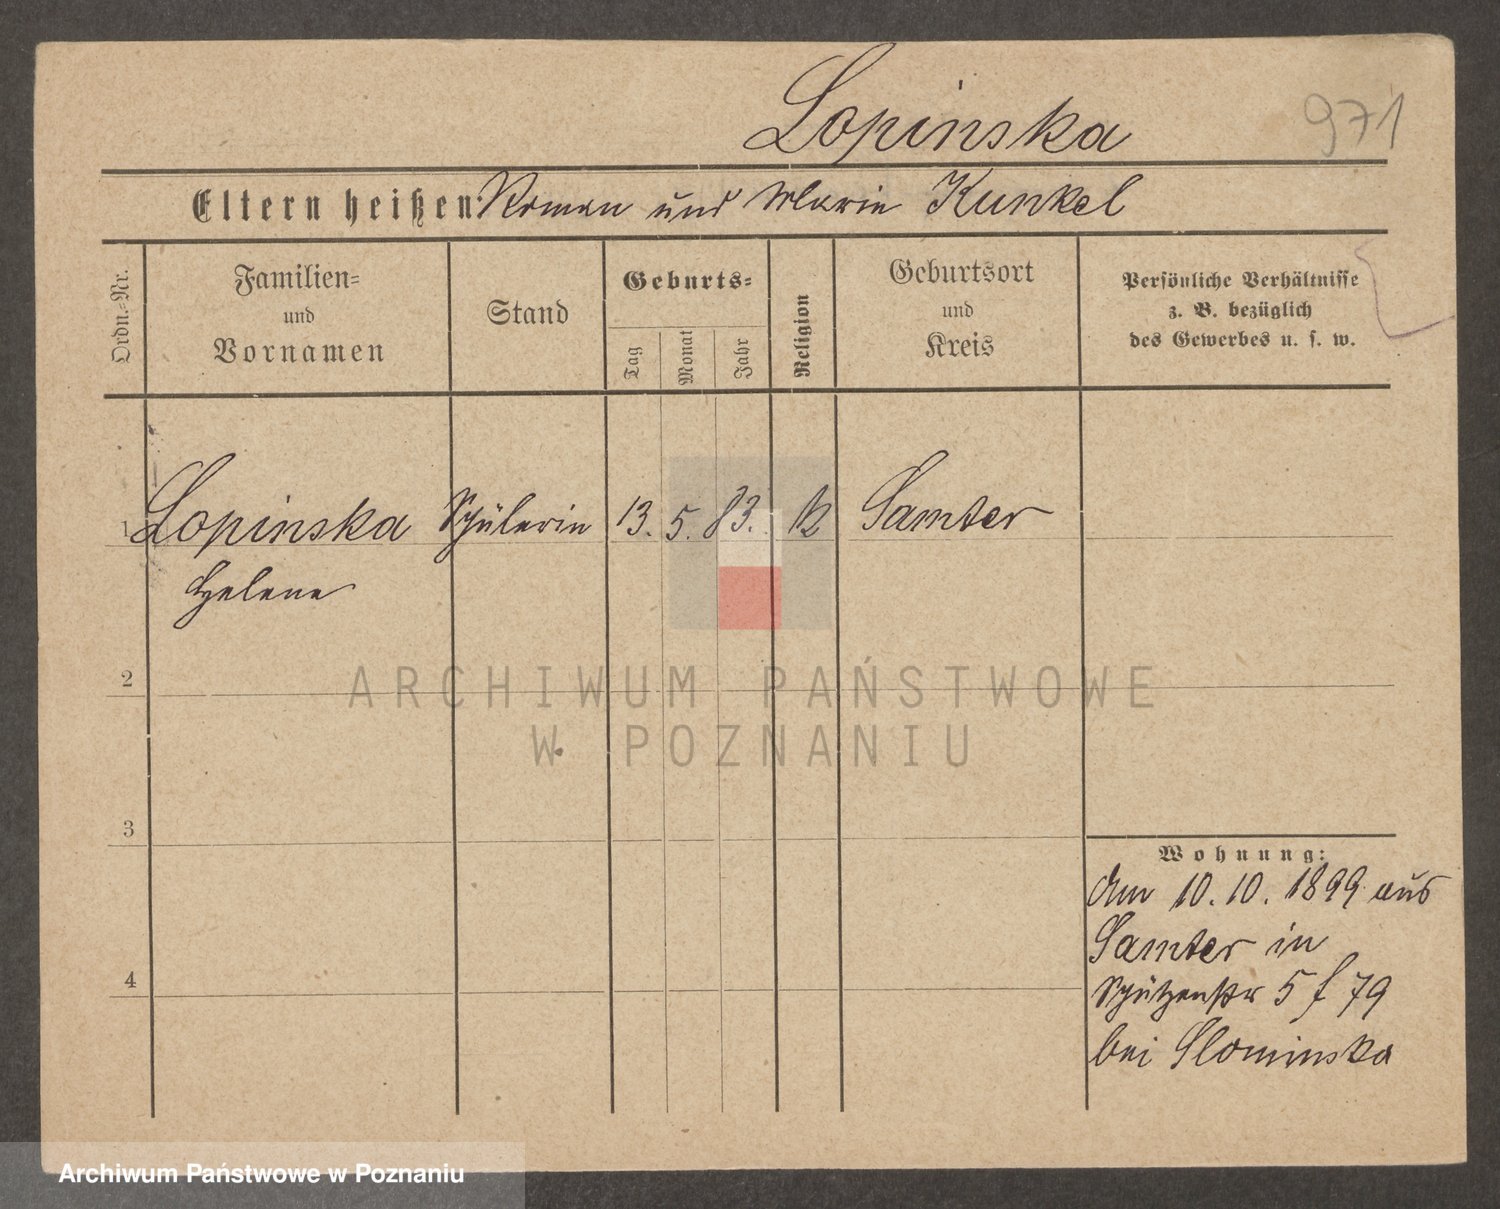 Lopinska 971
Eltern heißen: Roman und Marie Kunkel
Ordn.-Nr.
Familien-
und
Vornamen
Stand
Geburts-
Tag
Monat
Jahr
Religion
Geburtsort
und
Kreis
Persönliche Verhältnisse
z. B. bezüglich
des Gewerbes u. s. w.
1 Lopinska Schülerin 13. 5. 83. k Samter
Helene
2
3
4
Wohnung:
Am 10.10.1899 aus
Samter in
Schützenstr 5 f 79
bei Slominska
ARCHIWUM PAŃSTWOWE
W POZNANIU
Archiwum Państwowe w Poznaniu